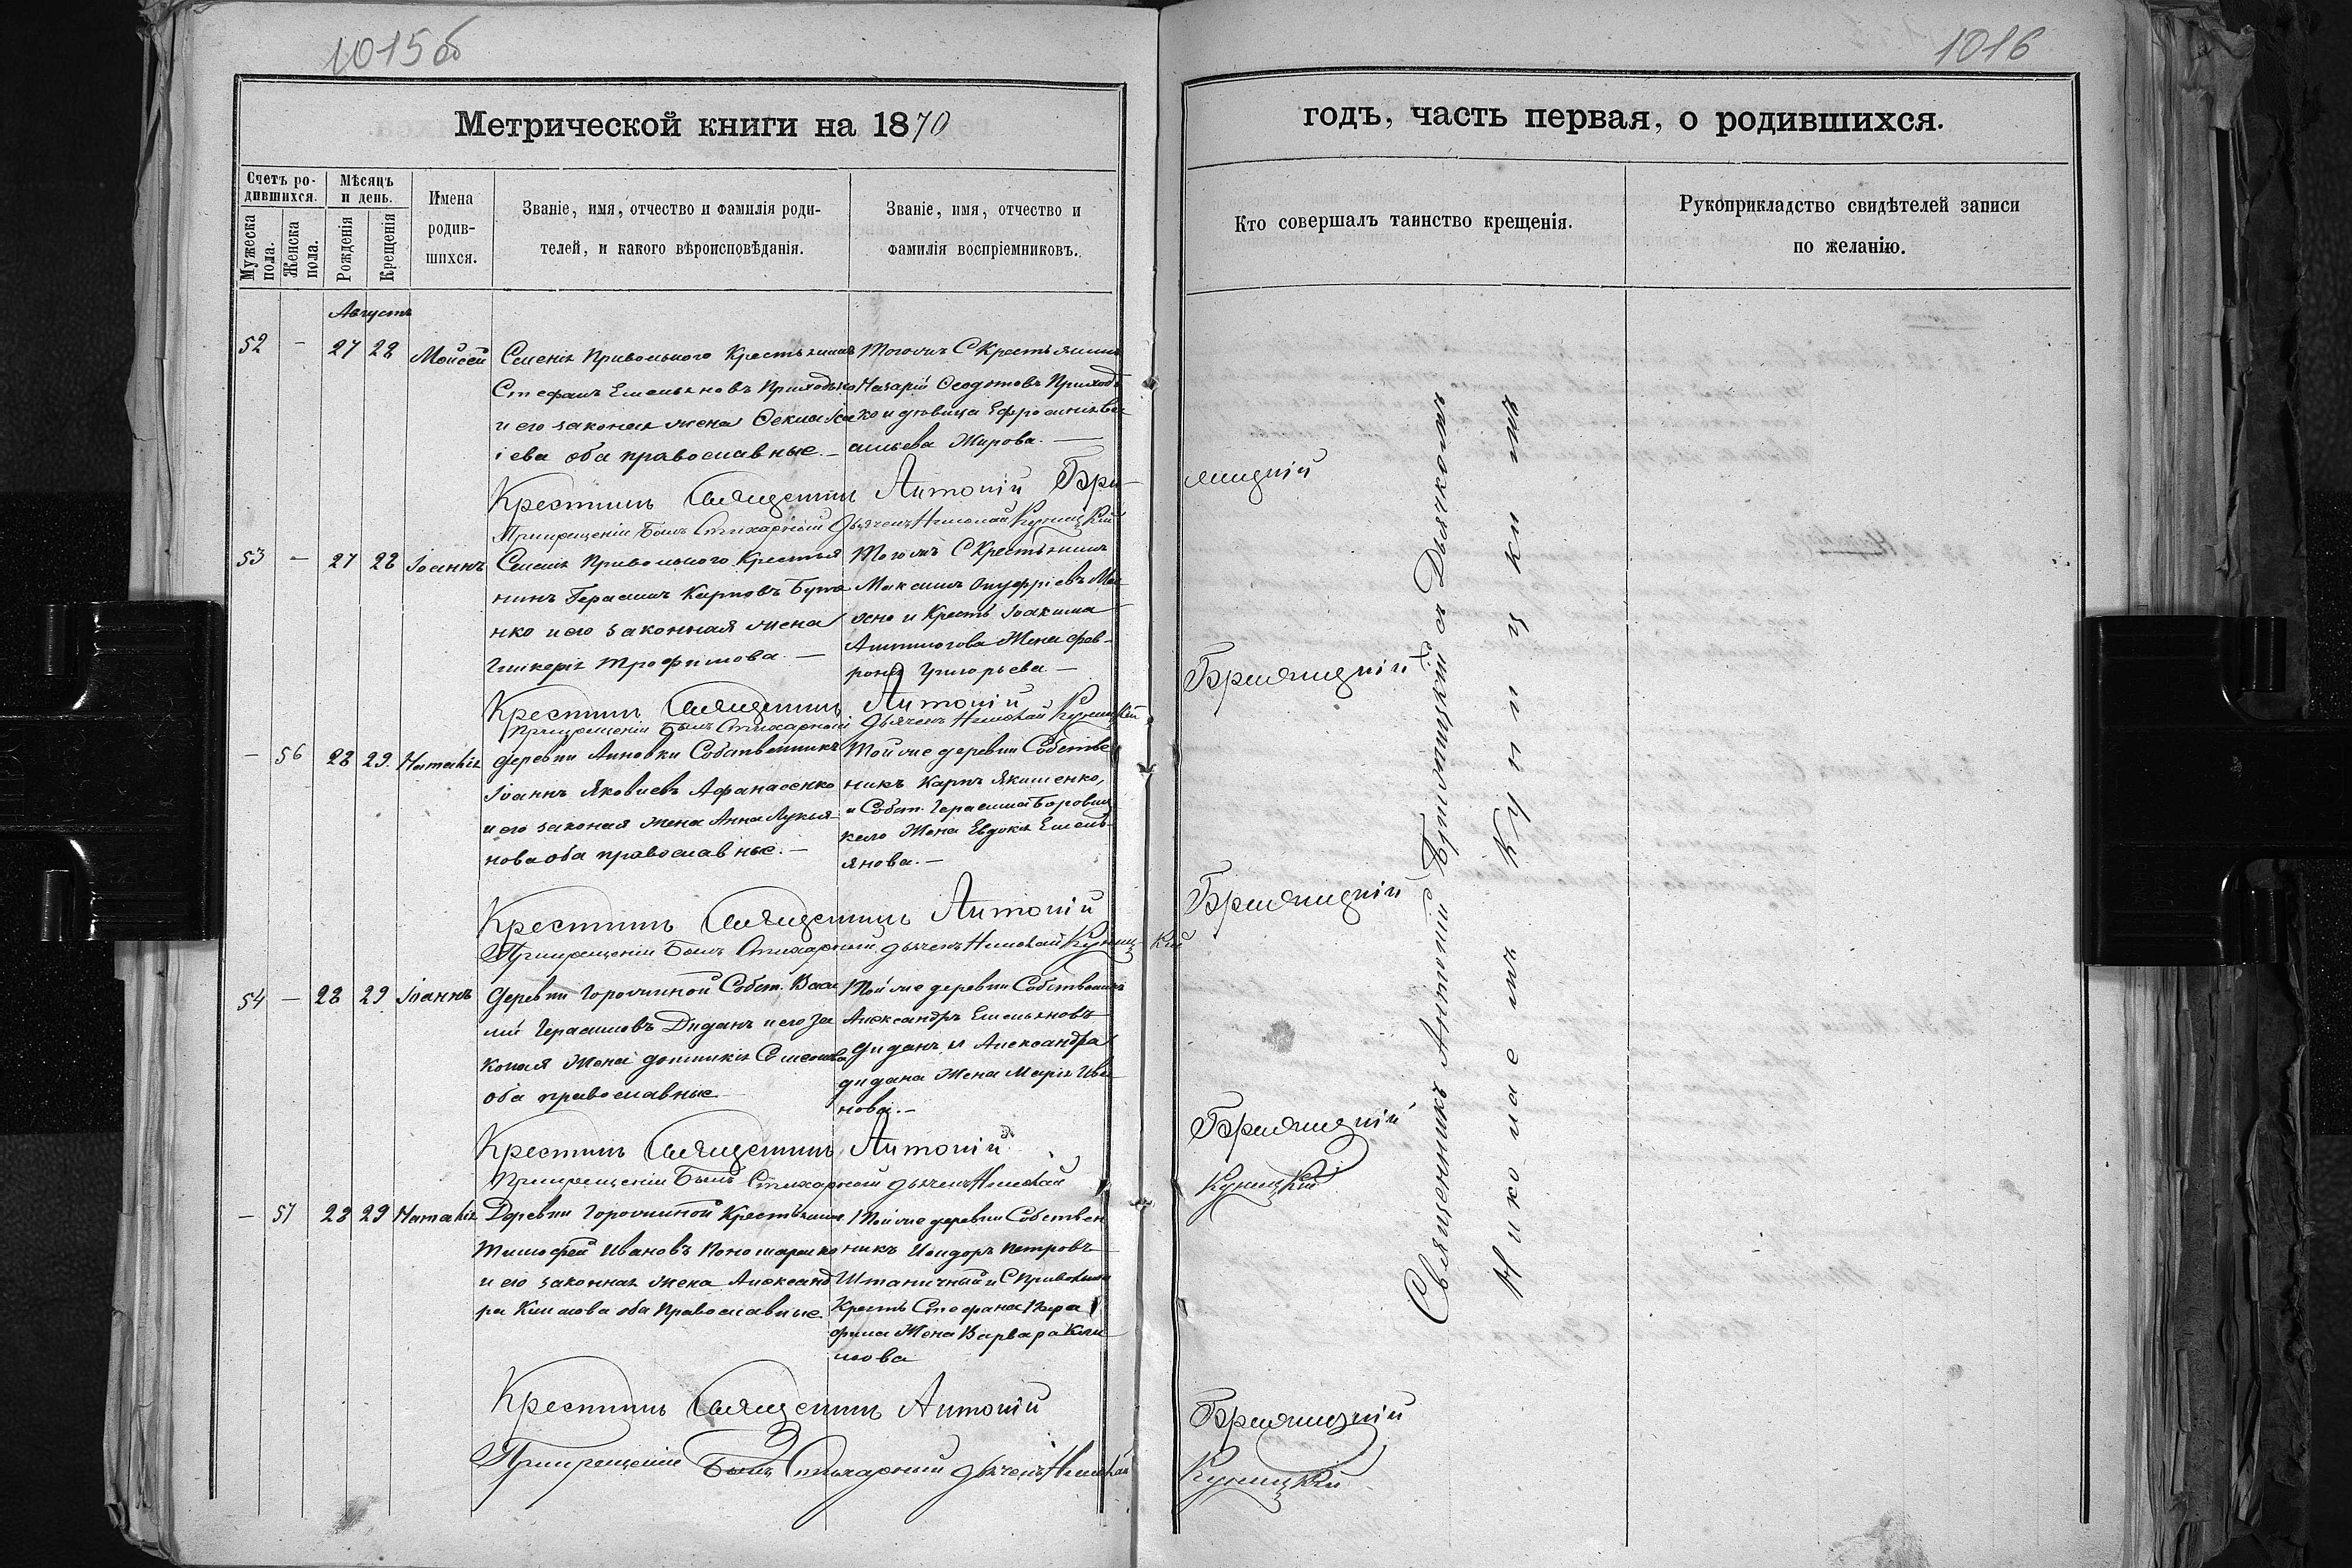 1015об
Метрической книги на 1870
Счетъ ро-
дившихся.
Мѣсяцъ
и день.
Мужеска
пола.
Женска
пола.
Рожденія
Крещенія
Имена
родив-
шихся.
Званіе, имя, отчество и фамилія роди-
телей, и какого вѣроисповѣданія.
Званіе, имя, отчество и
фамилія воспріемниковъ.
Августъ
52 - 27 28 Моисей
Селенія Привольного Крестьянинъ
Стефанъ Емельяновъ Приходько
и его законая жена Фекла
іева оба православные. -
Тогожъ С Крестьянинъ
Назарій Ѳеодотовъ Приходь
ко и дѣвица Ефросинія Ва
сильева Жирова. -
Крестилъ Священникъ Антоній Бри-
При крещеніи былъ Стихарный дьячекъ Николай Куницкій
53 - 27 28 Іоаннъ
Селенія Привольного Крестья
нинъ Герасимъ Карповъ Буте
нко и его законная жена
Гликерія Трофимова. -
Тогожъ С Крестьянинъ
Максимъ Онуфріевъ
и Крестъ Іоакима
Жена Фев-
ронія Григорьева. -
Крестилъ Священникъ Антоній
При крещеніи былъ Стихарный дьячекъ Николай Куницкій
- 56 28 29. Наталія
деревни Анновки Собственникъ
Іоаннъ Яковлевъ Афанасенко
и его законая жена Анна Лукья-
нова оба православные. -
Тойже деревни Собстве
никъ Карпъ Якименко,
и Собст. Герасима Боровин
кого Жена Евдокія Емель-
янова. -
Крестилъ Священникъ Антоній
При крещеніи былъ Стихарный дьячекъ Николай Куниц-кій
54 - 28 29 Іоаннъ
деревни Горожиной Собст. Васи
лій Герасимовъ Диданъ и его за
коная Жена домникія Симеонова
оба православные
Тойже деревни Собственникъ
Александръ Емельяновъ
Диданъ и Александра
дидана Жена Марія Ива
нова. -
Крестилъ Священникъ Антоній
При крещеніи былъ Стихарный дьячекъ Николай
- 57 28 29 Наталія
Деревни Горожиной Крестьянинъ
Тимофей Ивановъ Пономаренко
и его законная жена Александ
ра Климова оба Православные
Тойже деревни Собствен
никъ Исидоръ Петровъ
Штаничный и С Привольнаго
Крестъ Стефана
Жена Варвара Кли
мова
Крестилъ Священникъ Антоній
При крещеніи былъ Стихарный дьячекъ Николай
1016
годъ, часть первая, о родившихся.
Кто совершалъ таинство крещенія.
Рукоприкладство свидѣтелей записи
по желанію.
ллицкій
Бриллицкій
Бриллицкій
Бриллицкій
Куницкій
Бриллицкій
Куницкій
Священникъ Антоній Бриллицкій съ Дьячкомъ
Николаемъ Куницкимъ